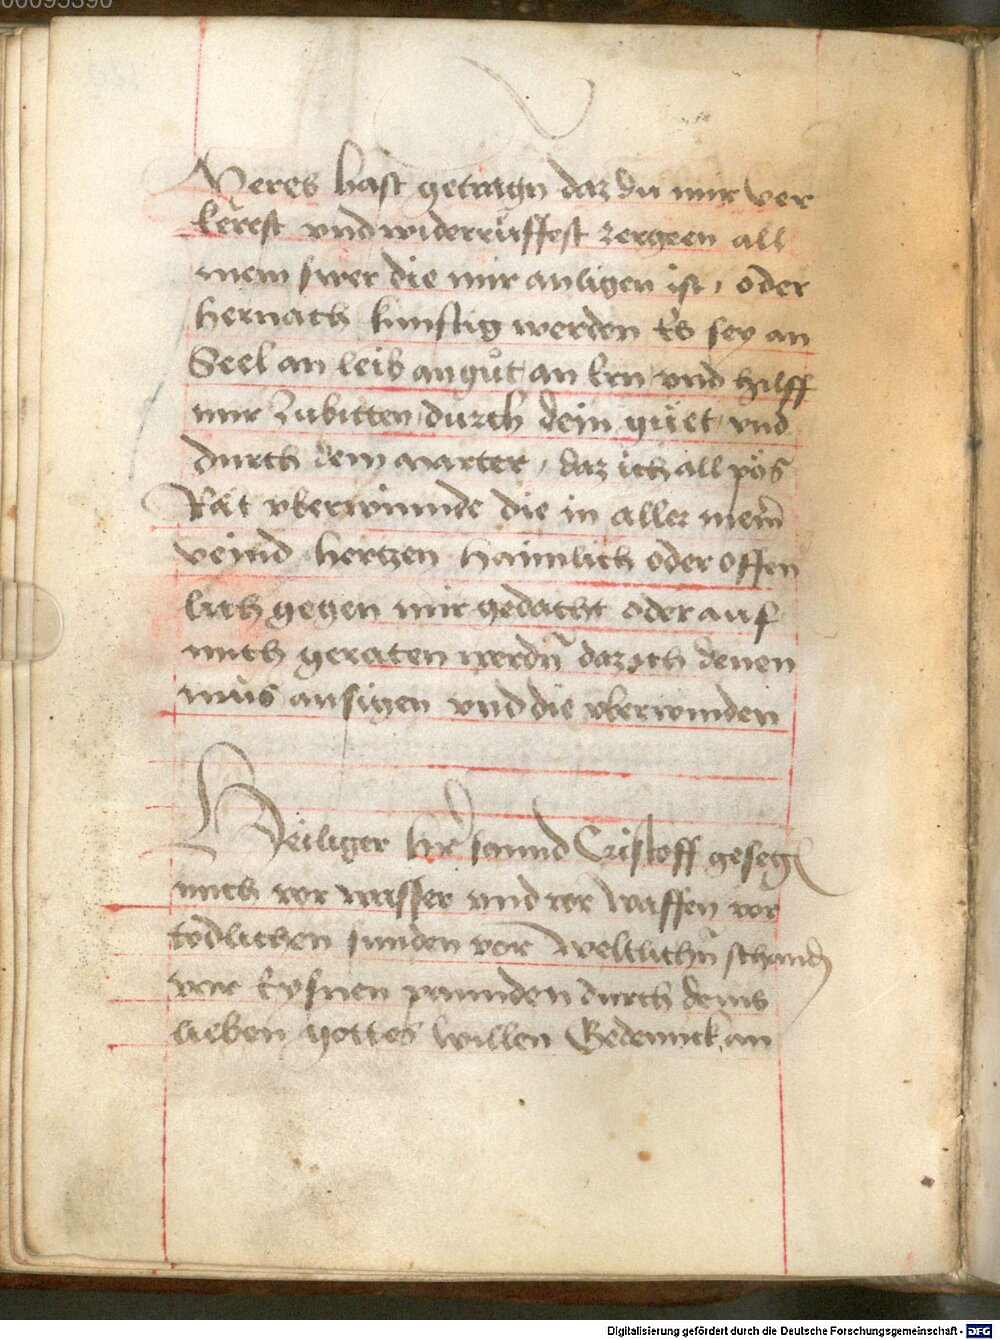 00095390
Meres hast getragn daz du mir ver
kerest vnd widerrůffest zergeen all
mein swer die mir anligen ist, oder
hernach kunftig werden Es sey an
Seel an leib an gůt an Ern vnd hilff
mir zubitten durch dein güet vnd
durch dein marter, daz ich all pös
Rät vberwinnde die in aller mein̄
veind hertzen haimlich oder offen
lich gegen mir gedacht oder auf
mich geraten werdn̄ daz ich denen
mus ansigen vnd die vberwinden
Heiliger her sannd Cristoff gesegn
mich vor wasser vnd vor waffen vor
todlichen sunden vor weltlichn̄ schandn̄
vor Eysnen pannden durch deins
lieben gottes willen Gedennck an
Digitalisierung gefördert durch die Deutsche Forschungsgemeinschaft - DFG